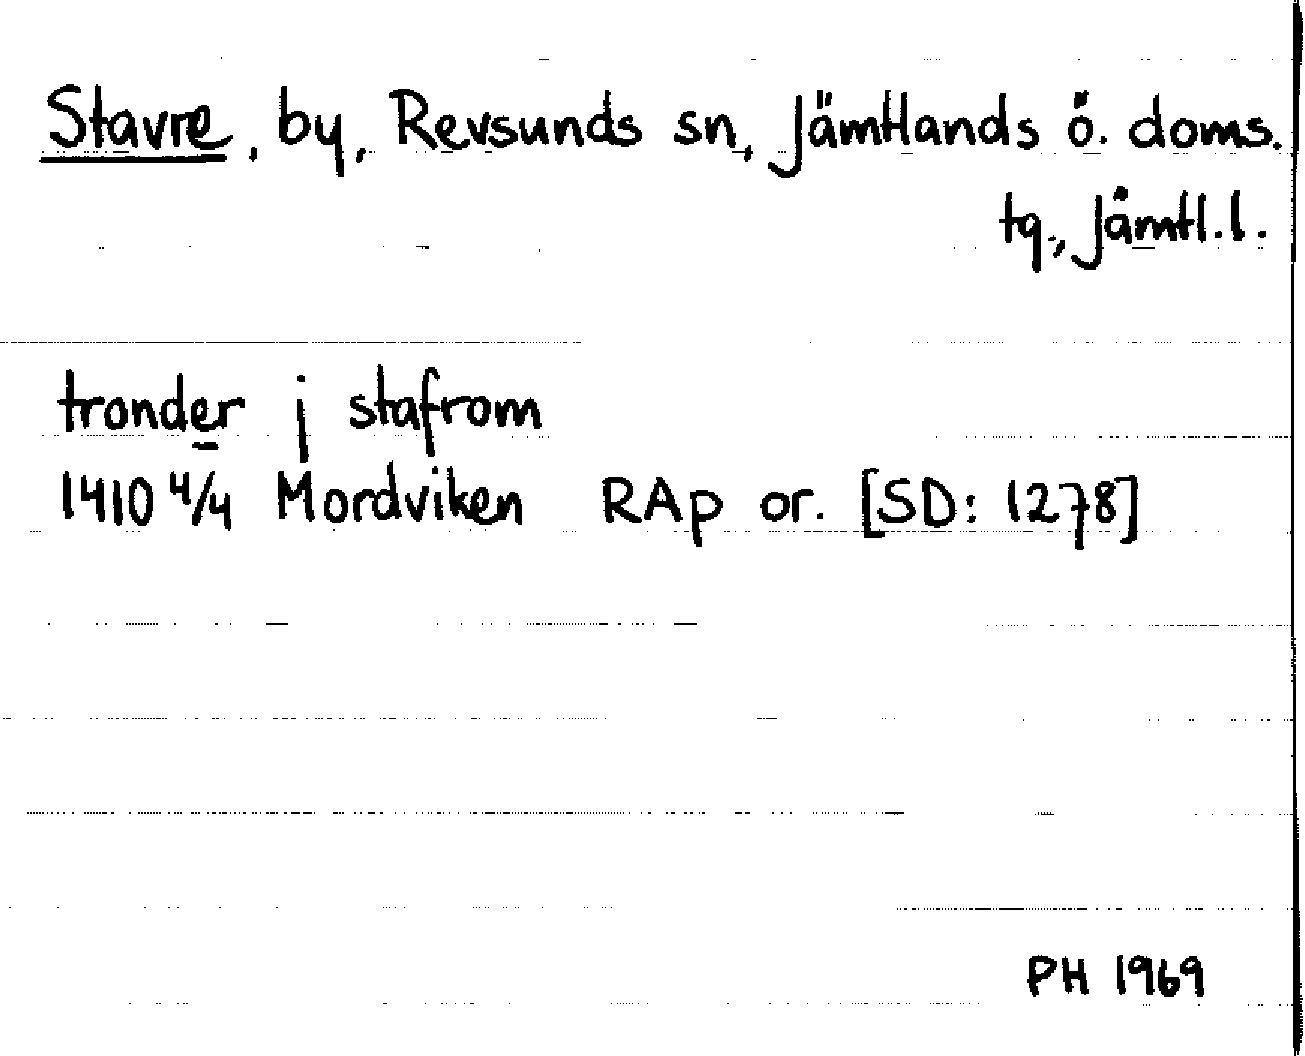 Stavre, by, Revsunds sn, Jämtlands ö. doms.
tg., Jämtl.l.
tronder j stafrom
1410 4/4 Mordviken RAp or. [SD: 1278]
PH 1969